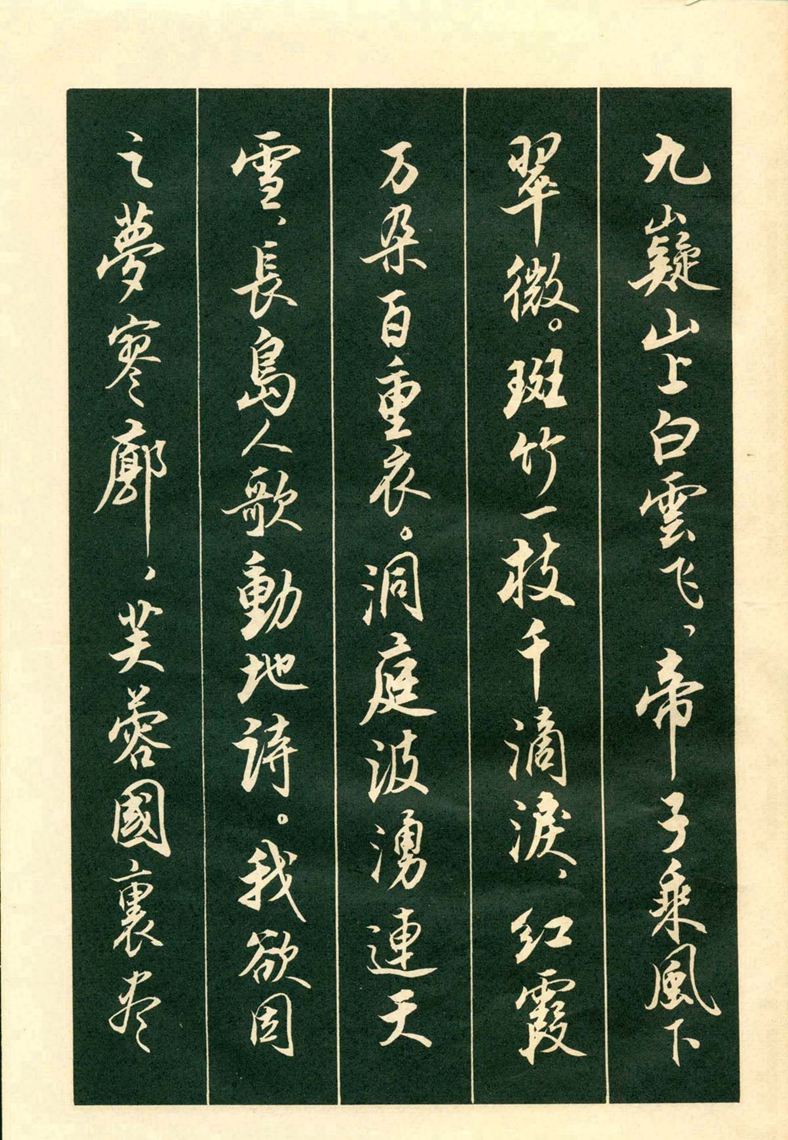 九嶷山上白雲飞、帝子乘風下
翠微。斑竹一枝千滴淚、红霞
万朵百重衣。洞庭波湧連天
雪、長島人歌動地诗。我欲因
之夢寥廓、芙蓉國裏尽